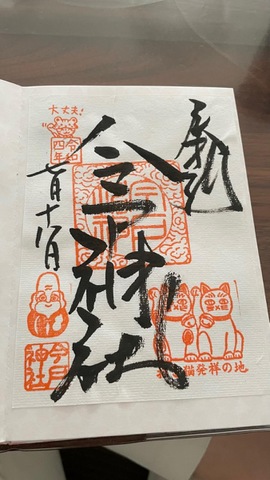 奉拝
今戸神社
大丈夫!
令和
四年
七月十八日
今戸
神社
猫発祥の地